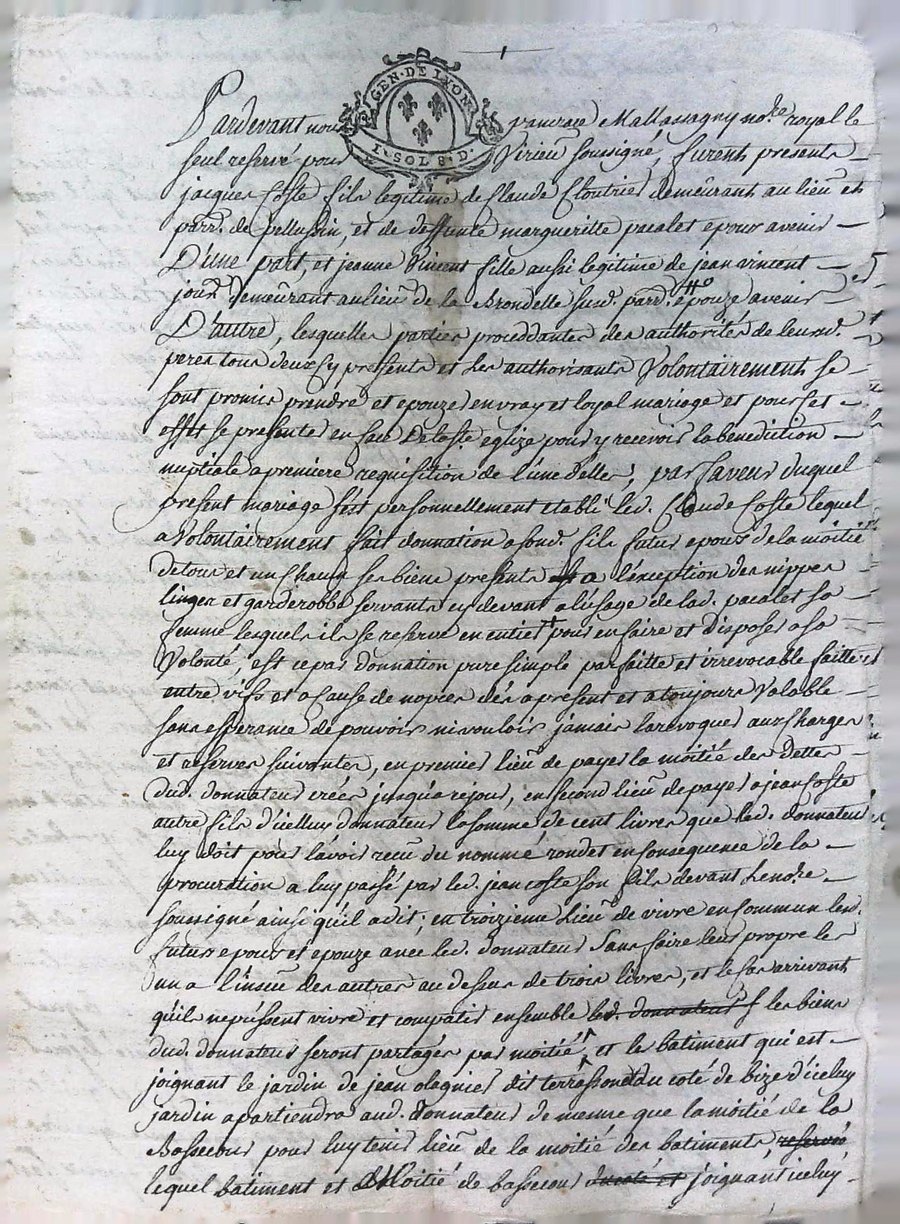 GEN. DE LYON
1. SOL 8 D.
Pardevant nous pancrace Mallassagny nore. royal le
seul reservé pour Virieu soussigné, furent presents
jacques Coste fils legitime de Claude Cloutrier demeurant au lieu et
parr. de pellussin, et de deffunte margueritte pacalet epoux avenir
D'une part, et jeanne Vincent fille aussi legitime de jean vincent
jour. demeurant au lieu de la Brondelle susd. parr. epouze avenir
D'autre, lesquelles parties proceddantes des authorités de leursd.
peres tous deux cy presents et les authorisants Volontairement se
sont promis prendre et epouzer en vray et loyal mariage et pour cet
effet se presenter en face de La Ste eglize pour y recevoir la benediction
nuptiale a premiere requisition de l'une d'elles, par faveur duquel
present mariage s'est personnellement etabli led. Claude Coste lequel
a Volontairement fait donnation a sond. fils futur epoux de la moitié
de tous et un chacun ses biens presents a l'exception des nippes
linges et garderobbe servants cy devant a l'usage de lad. pacalet sa
femme lesquels il se reserve en entier pour en faire et Disposer a sa
Volonté, est ce par donnation pure simple parfaitte et irrevocable faitte
entre vifs et a Cause de nopces dés a present et a toujours Valable
sans esperance de pouvoir ni vouloir jamais la revoquer aux Charges
et reserves suivantes, en premier lieu de payer la moitié des Dettes
dud. donnateur créés jusqu'a ce jour, en second lieu de payer a jean Coste
autre fils d'icelluy donnateur la somme de cent livres que led. donnateur
luy doit pour l'avoir recu du nommé rondet en consequence de la
procuration a luy passé par led. jean coste son fils devant Le nore.
soussigné ainsi qu'il a dit; en troizieme Lieu de vivre en commun lesd.
futurs epoux et epouze avec led. donnateur Sans faire leur propre les
uns a l'inscu des autres au dessus de trois livres, et le cas arrivant
qu'ils ne pussent vivre et compatir ensemble led. donnateur les biens
dud. donnateur seront partagés par moitié, et le batiment qui est
joignant le jardin de jean olagnier dit terrasson du coté de bize d'icelluy
jardin apartiendra aud. donnateur de meme que la moitié de la
Bassecour pour luy tenir lieu de la moitié des batiments, reservé
lequel batiment et Moitié de bassecour du coté et joignant iceluy